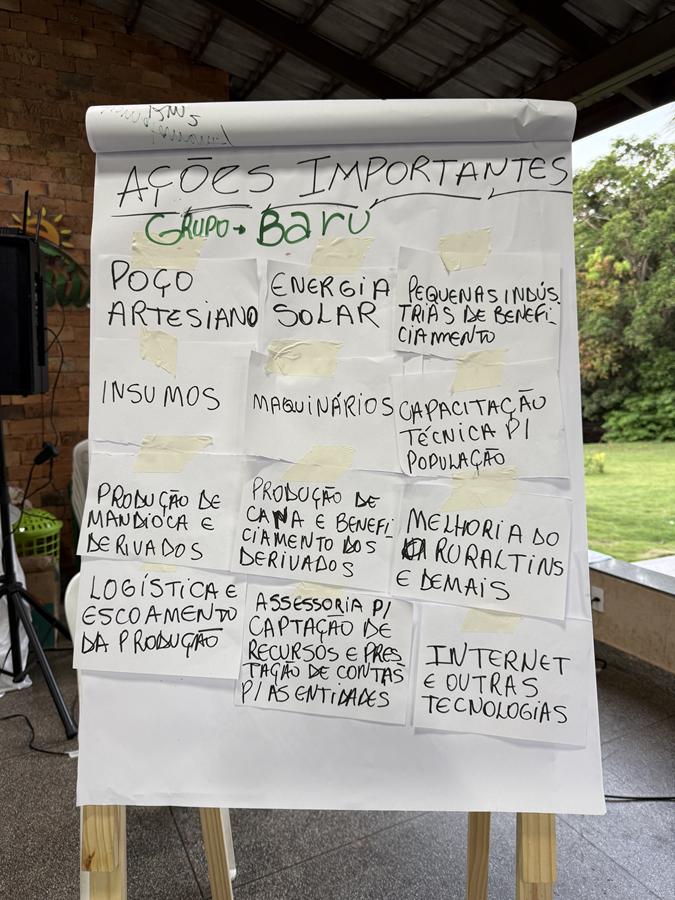 AÇÕES IMPORTANTES
GRUPO → BARU
POÇO
ARTESIANO
ENERGIA
SOLAR
PEQUENAS INDÚS-
TRIAS DE BENEFI-
CIAMENTO
INSUMOS
MAQUINÁRIOS
CAPACITAÇÃO
TÉCNICA P/
POPULAÇÃO
PRODUÇÃO DE
MANDIOCA E
DERIVADOS
PRODUÇÃO DE
CANA E BENEFI-
CIAMENTO DOS
DERIVADOS
MELHORIA DO
RURALTINS
E DEMAIS
LOGÍSTICA E
ESCOAMENTO
DA PRODUÇÃO
ASSESSORIA P/
CAPTAÇÃO DE
RECURSOS E PRES-
TAÇÃO DE CONTAS
P/ AS ENTIDADES
INTERNET
E OUTRAS
TECNOLOGIAS